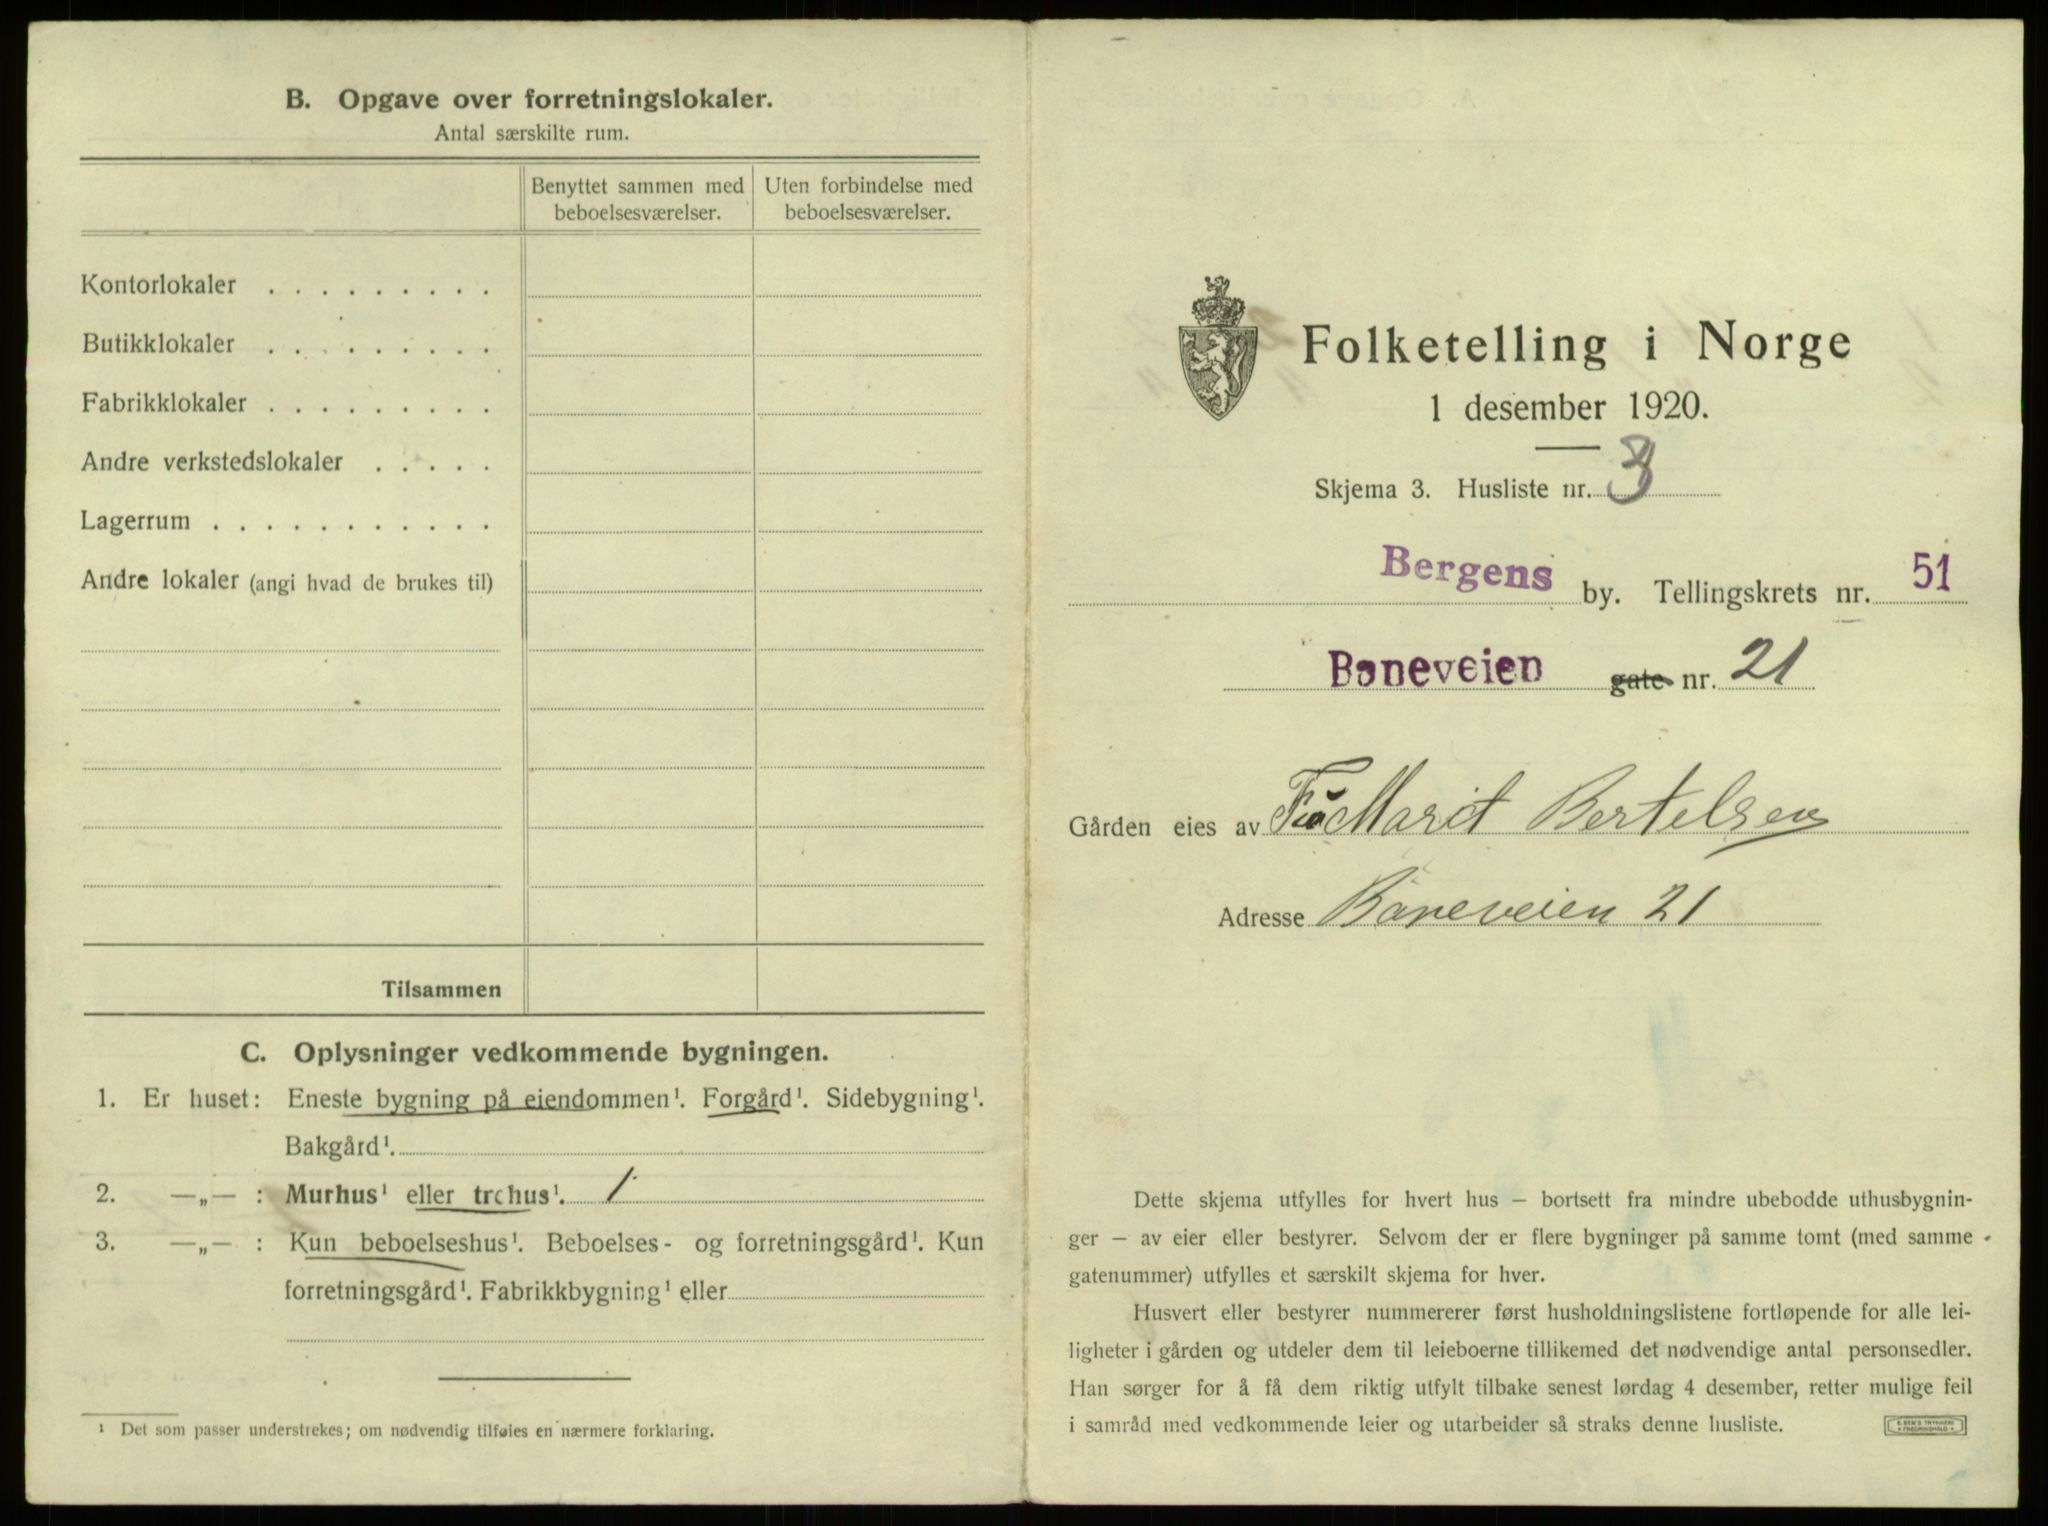 B. Opgave over forretningslokaler.
Antal særskilte rum.
Benyttet sammen med beboelsesværelser.
Uten forbindelse med beboelsesværelser.
Kontorlokaler . . . . . . . . .
Butikklokaler . . . . . . . . .
Fabrikklokaler . . . . . . . . .
Andre verkstedslokaler . . . . .
Lagerrum . . . . . . . . . . .
Andre lokaler (angi hvad de brukes til)
Tilsammen
C. Oplysninger vedkommende bygningen.
1. Er huset: Eneste bygning på eiendommen¹. Forgård¹. Sidebygning¹.
Bakgård¹.
2. —„— : Murhus¹ eller trehus¹. 1
3. —„— : Kun beboelseshus¹. Beboelses- og forretningsgård¹. Kun
forretningsgård¹. Fabrikkbygning¹ eller
¹ Det som passer understrekes; om nødvendig tilføies en nærmere forklaring.
Folketelling i Norge
1 desember 1920.
Skjema 3. Husliste nr. 3
Bergens by. Tellingskrets nr. 51
Baneveien gate nr. 21
Gården eies av Marit Bertelsen
Adresse Baneveien 21
Dette skjema utfylles for hvert hus – bortsett fra mindre ubebodde uthusbygnin-
ger – av eier eller bestyrer. Selvom der er flere bygninger på samme tomt (med samme
gatenummer) utfylles et særskilt skjema for hver.
Husvert eller bestyrer nummererer først husholdningslistene fortløpende for alle lei-
ligheter i gården og utdeler dem til leieboerne tillikemed det nødvendige antal personsedler.
Han sørger for å få dem riktig utfylt tilbake senest lørdag 4 desember, retter mulige feil
i samråd med vedkommende leier og utarbeider så straks denne husliste.
E. SEM'S TRYKKERI
FREDRIKSHALD